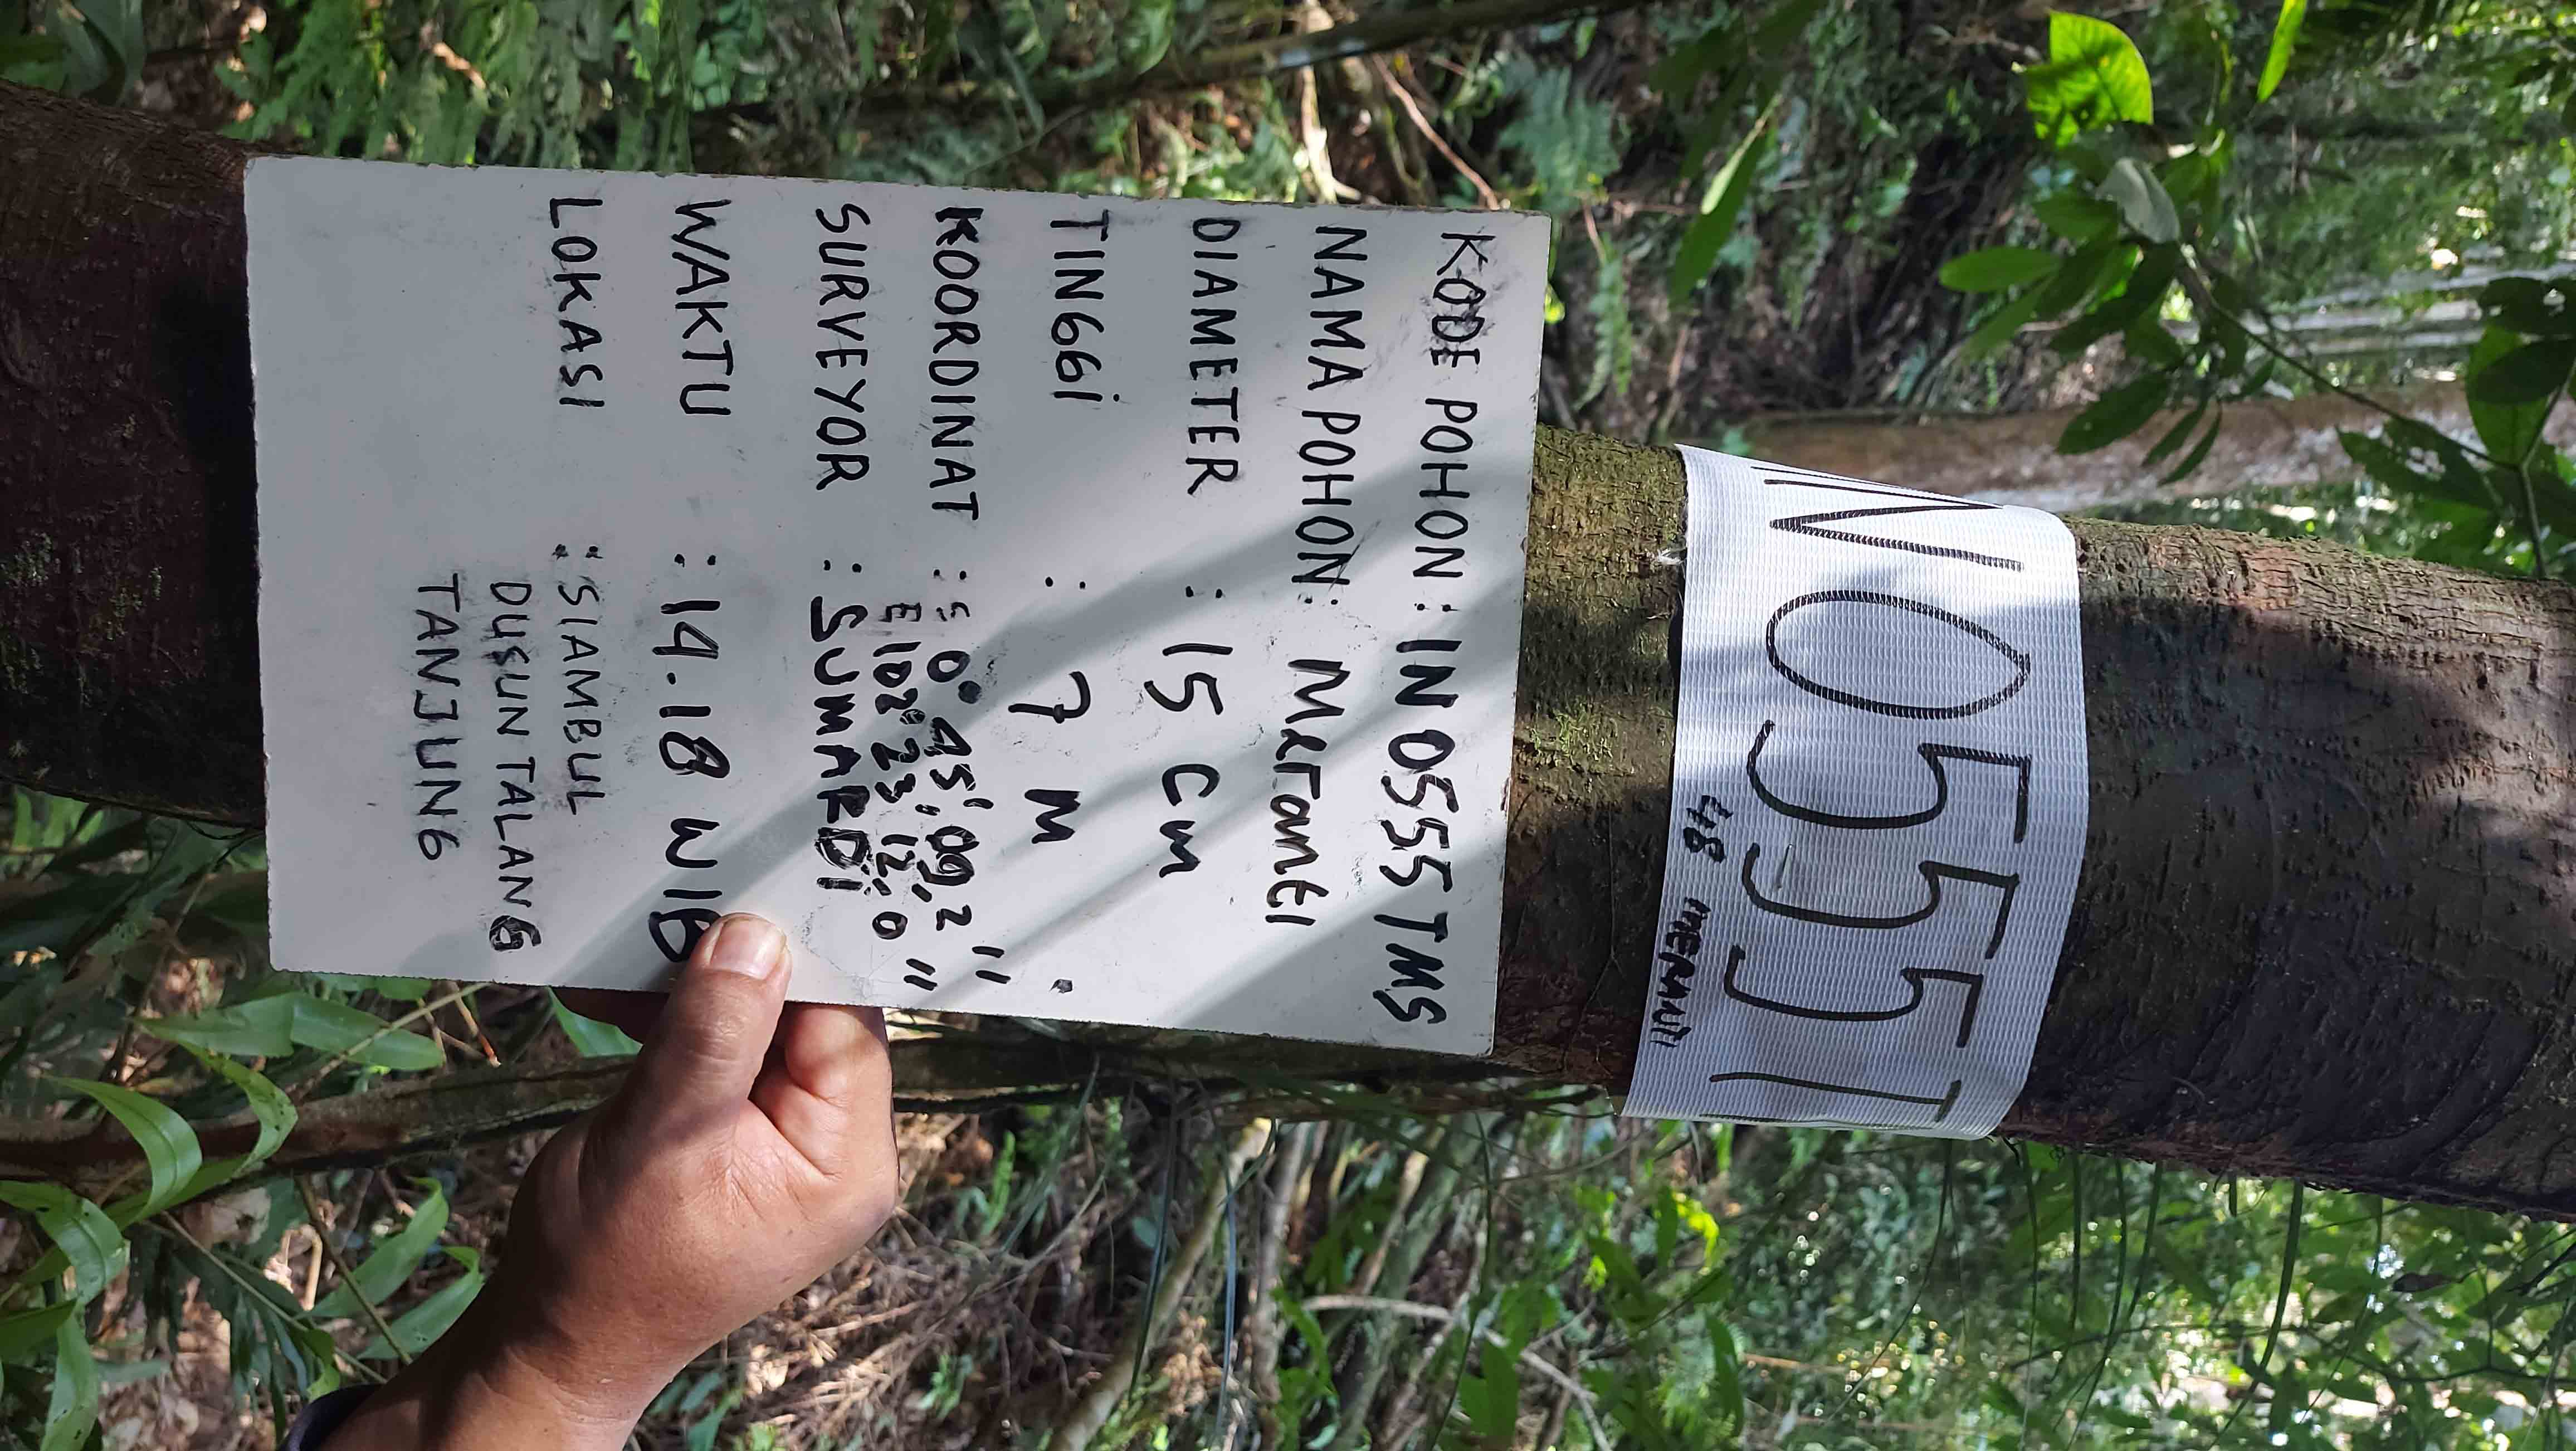 N0555T
48 MERANTI
KODE POHON : IN 0555 TMS
NAMA POHON : Meranti
DIAMETER : 15 cm
TINGGi : 7 M
KOORDINAT : S 0° 45' 09,2"
E 102° 23' 12,0"
SURVEYOR : SUMARDi
WAKTU : 14.18 WIB
LOKASI : SIAMBUL
DUSUN TALANG
TANJUNG